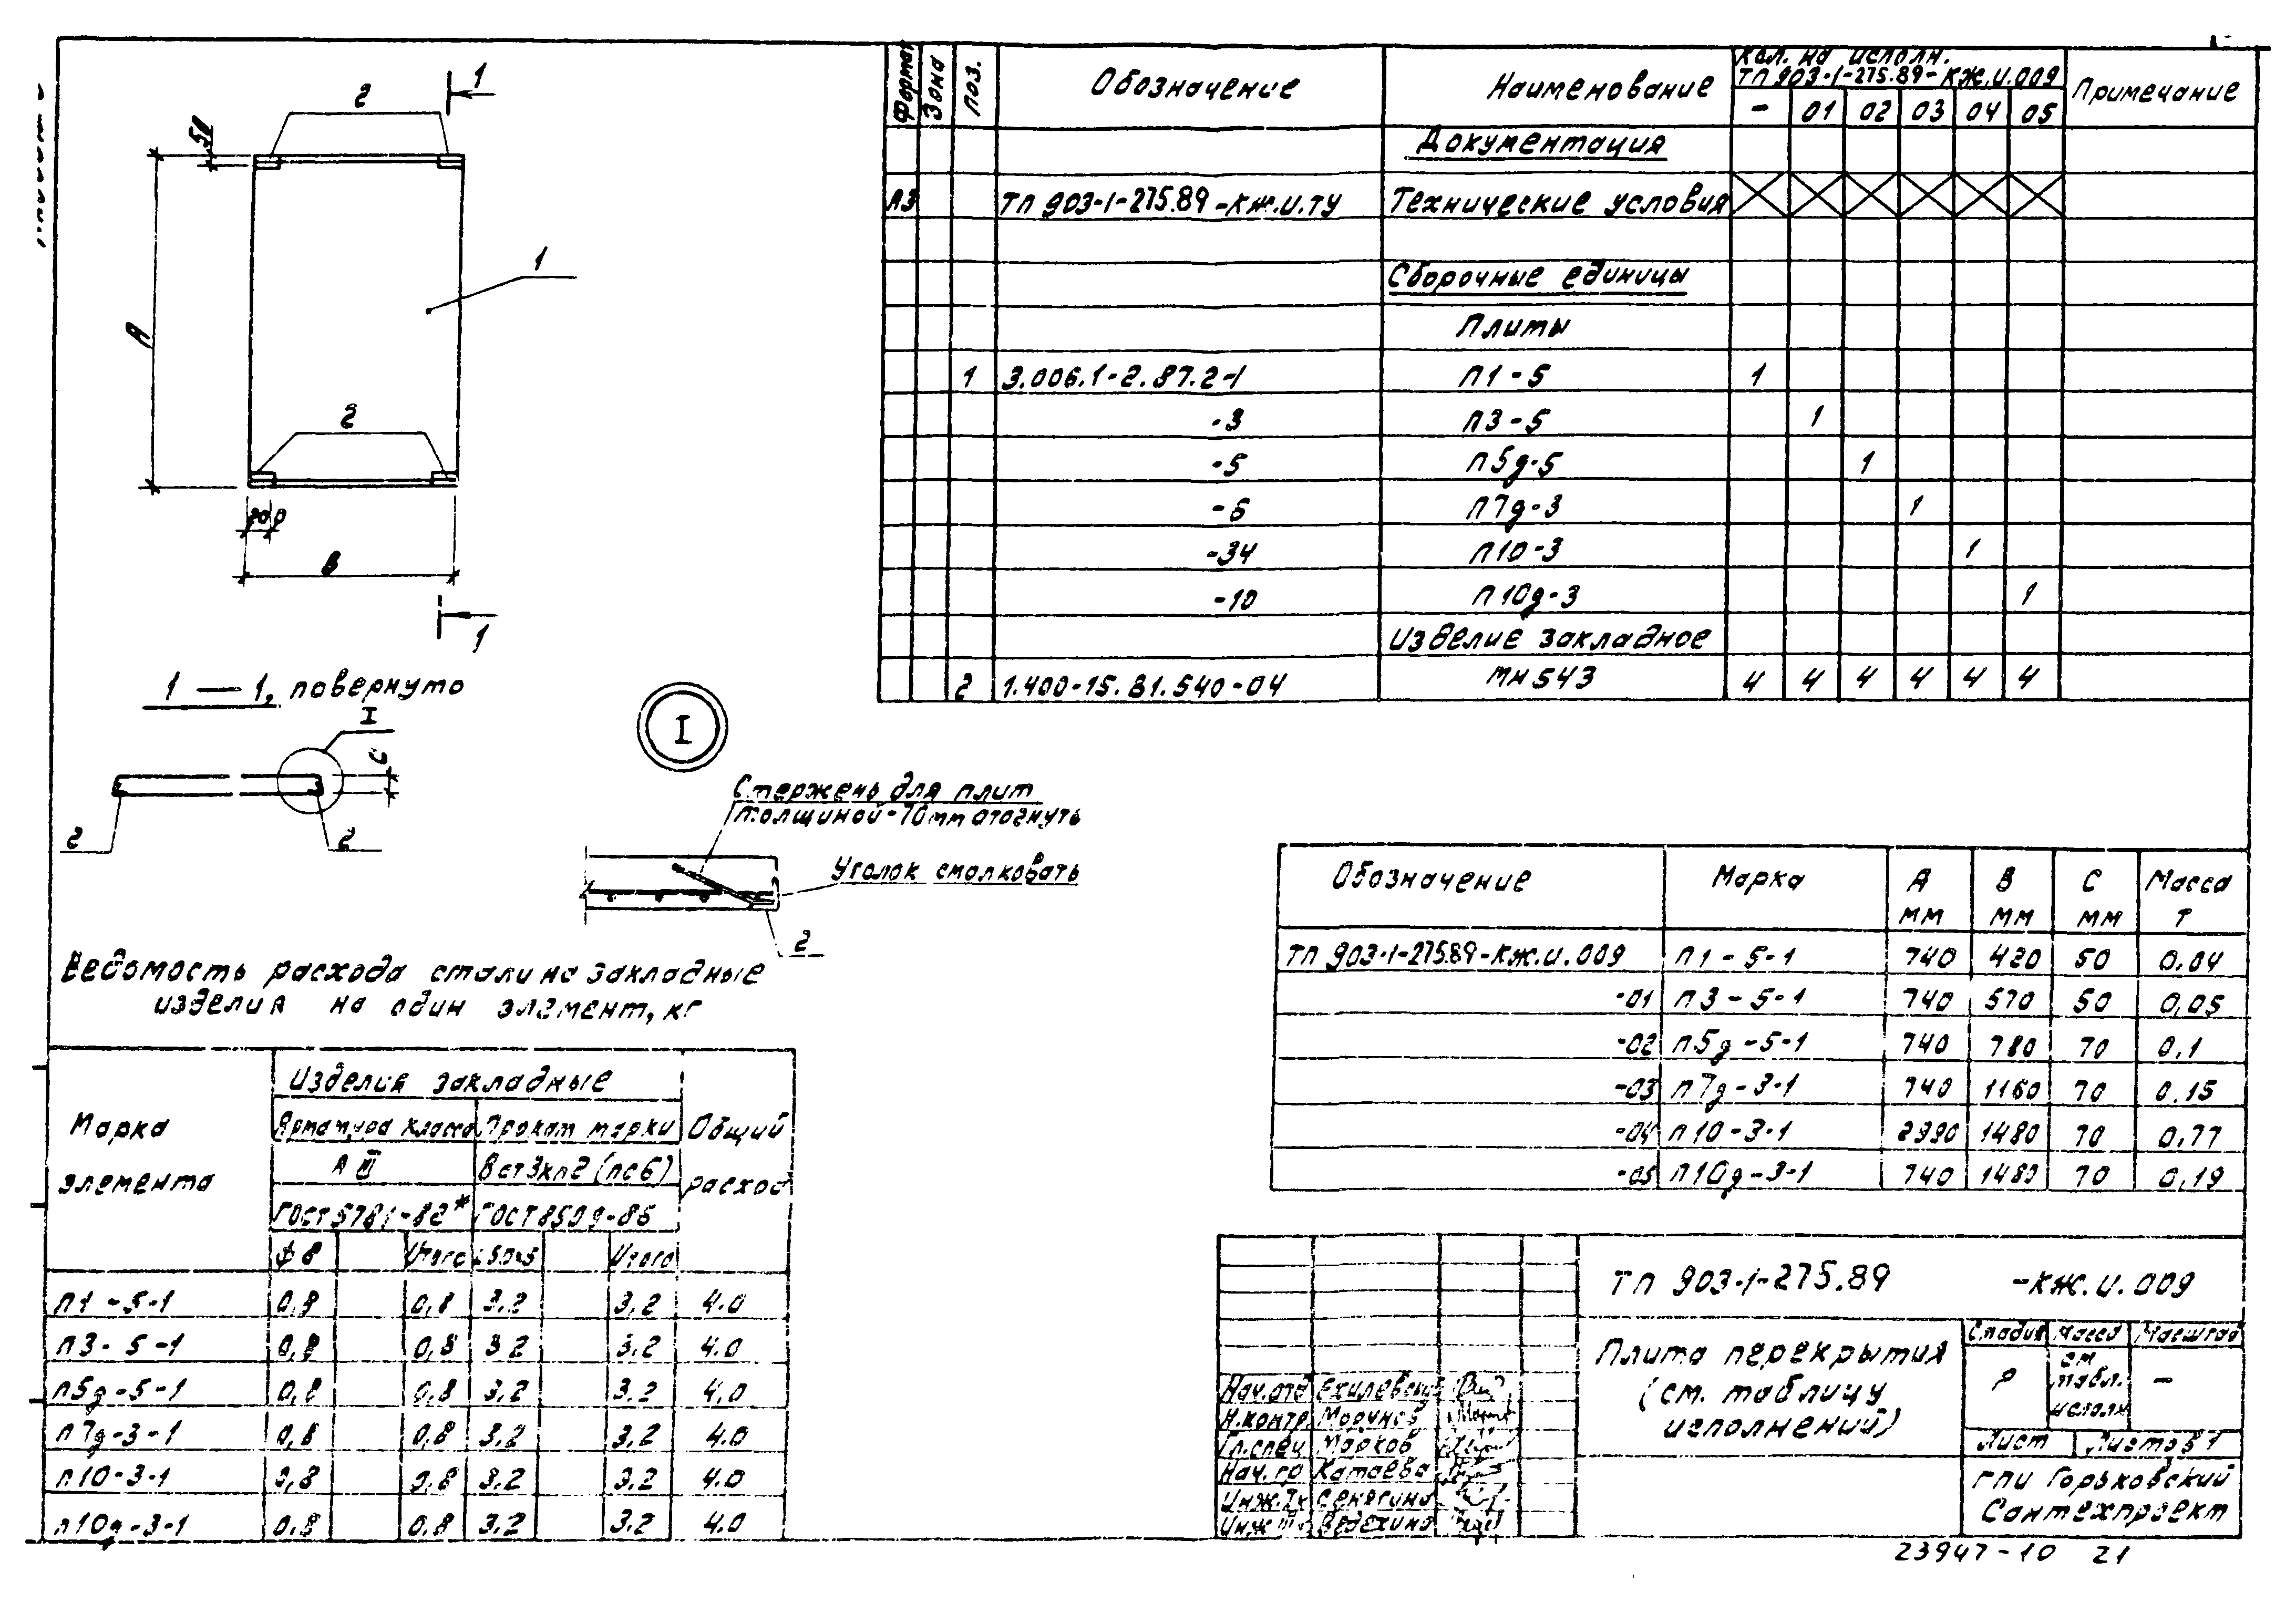 2
1
50
А
1
2
В
1
1 — 1, повернуто
I
С
2
2
I
Стержень для плит
толщиной-70мм отогнуть
Уголок смолковать
2
Формат Зона Поз. Обозначение Наименование Кол. на исполн. ТП 903-1-275.89-КЖ.И.009 Примечание
- 01 02 03 04 05
Документация
А3 ТП 903-1-275.89-КЖ.И.ТУ Технические условия
Сборочные единицы
Плиты
1 3.006.1-2.87.2-1 П1-5 1
-3 П3-5 1
-5 П5д-5 1
-6 П7д-3 1
-34 П10-3 1
-10 П10д-3 1
Изделие закладное
2 1.400-15.В1.540-04 МН543 4 4 4 4 4 4
Обозначение Марка А мм В мм С мм Масса Т
ТП 903-1-275.89-КЖ.И.009 П1-5-1 740 420 50 0,04
-01 П3-5-1 740 570 50 0,05
-02 П5д-5-1 740 780 70 0,1
-03 П7д-3-1 740 1160 70 0,15
-04 П10-3-1 2990 1480 70 0,77
-05 П10д-3-1 740 1480 70 0,19
Ведомость расхода стали на закладные
изделия на один элемент, кг
Марка элемента Изделия закладные Общий расход
Арматура класса Прокат марки
А III ВСт3кп2 (пс6)
ГОСТ 5781-82* ГОСТ 8509-86
ф8 Итого Итого
П1-5-1 0,8 0,8 3,2 3,2 4.0
П3-5-1 0,8 0,8 3.2 3.2 4.0
П5д-5-1 0,8 0,8 3,2 3,2 4,0
П7д-3-1 0,8 0,8 3,2 3,2 4.0
П10-3-1 0,8 0,8 3.2 3,2 4.0
П10д-3-1 0,8 0,8 3.2 3.2 4.0
ТП 903-1-275.89 -КЖ.И.009
Плита перекрытия
(см. таблицу
исполнений)
Стадия Масса Масштаб
Р см. табл. исполн. -
Лист Листов 1
ГПИ Горьковский
Сантехпроект
Нач.отд
Н.контр.
Гл.спец Марков
Нач.гр Катаева
23947-10 21